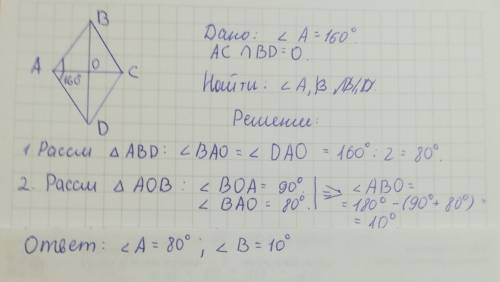 B
Дано: ∠ A = 160°.
AC ∩ BD = O.
A 160° O C
Найти: ∠ A, B
D
Решение:
1. Рассм △ ABD: ∠ BAO = ∠ DAO = 160° : 2 = 80°.
2. Рассм △ AOB: ∠ BOA = 90°. ⇒ ∠ ABO =
∠ BAO = 80°. = 180° - (90° + 80°) =
= 10°
Ответ: ∠ A = 80° ; ∠ B = 10°